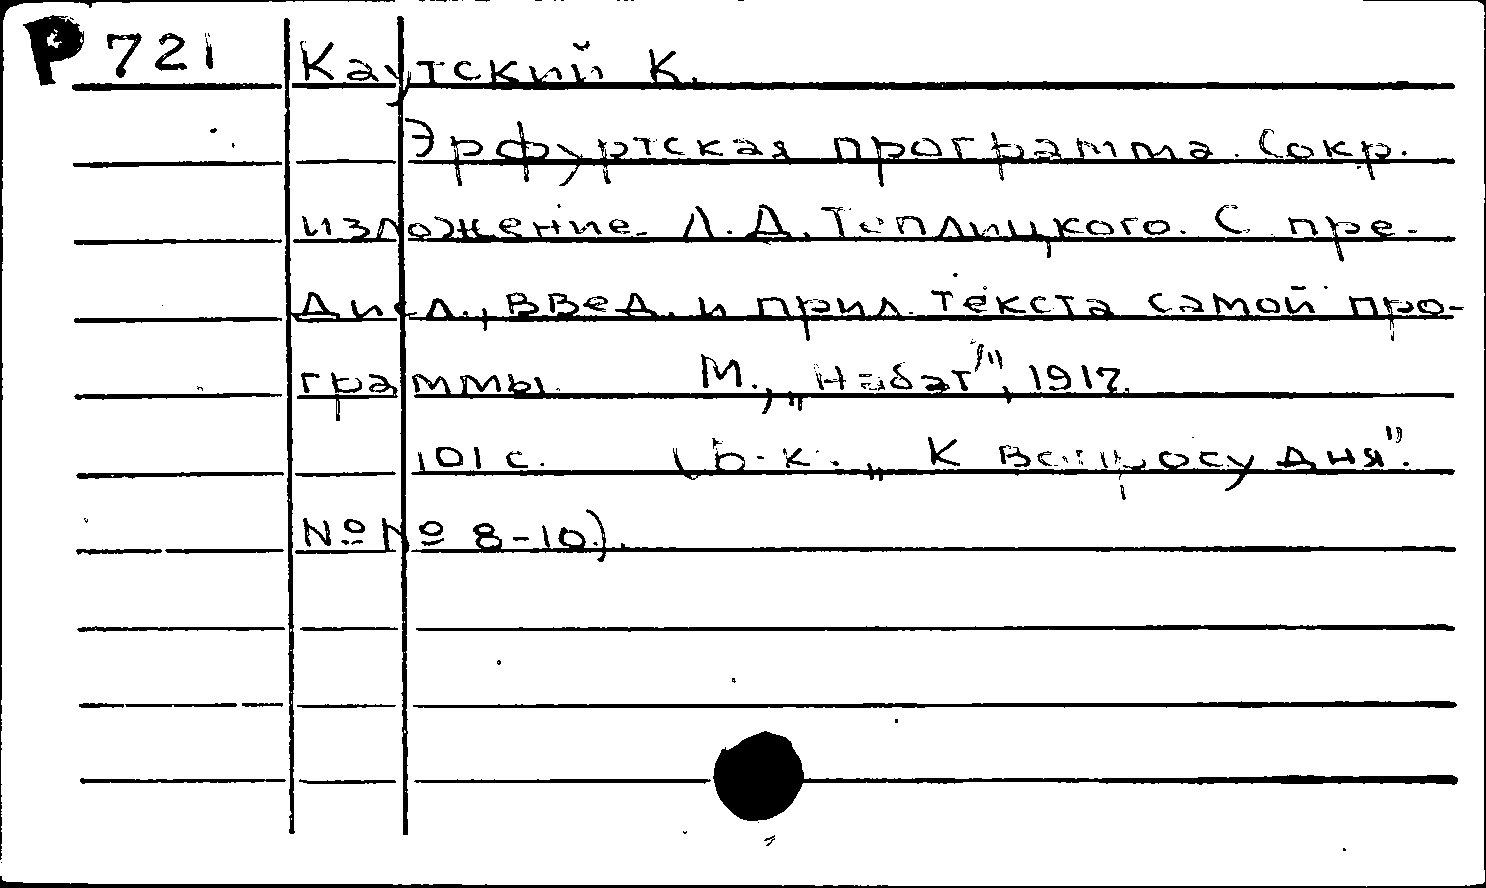 Р 721 Каутский К.
Эрфуртская программа. Сокр.
изложение Л. Д. Теплицкого. С пре-
дисл., введ. и прил. текста самой про-
граммы. М., „Набат", 1917.
101 с. (Б-к. „К вопросу дня".
№№ 8-10).